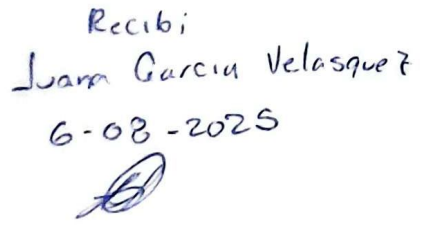 Recibi
Juana Garcia Velasquez
6-08-2025